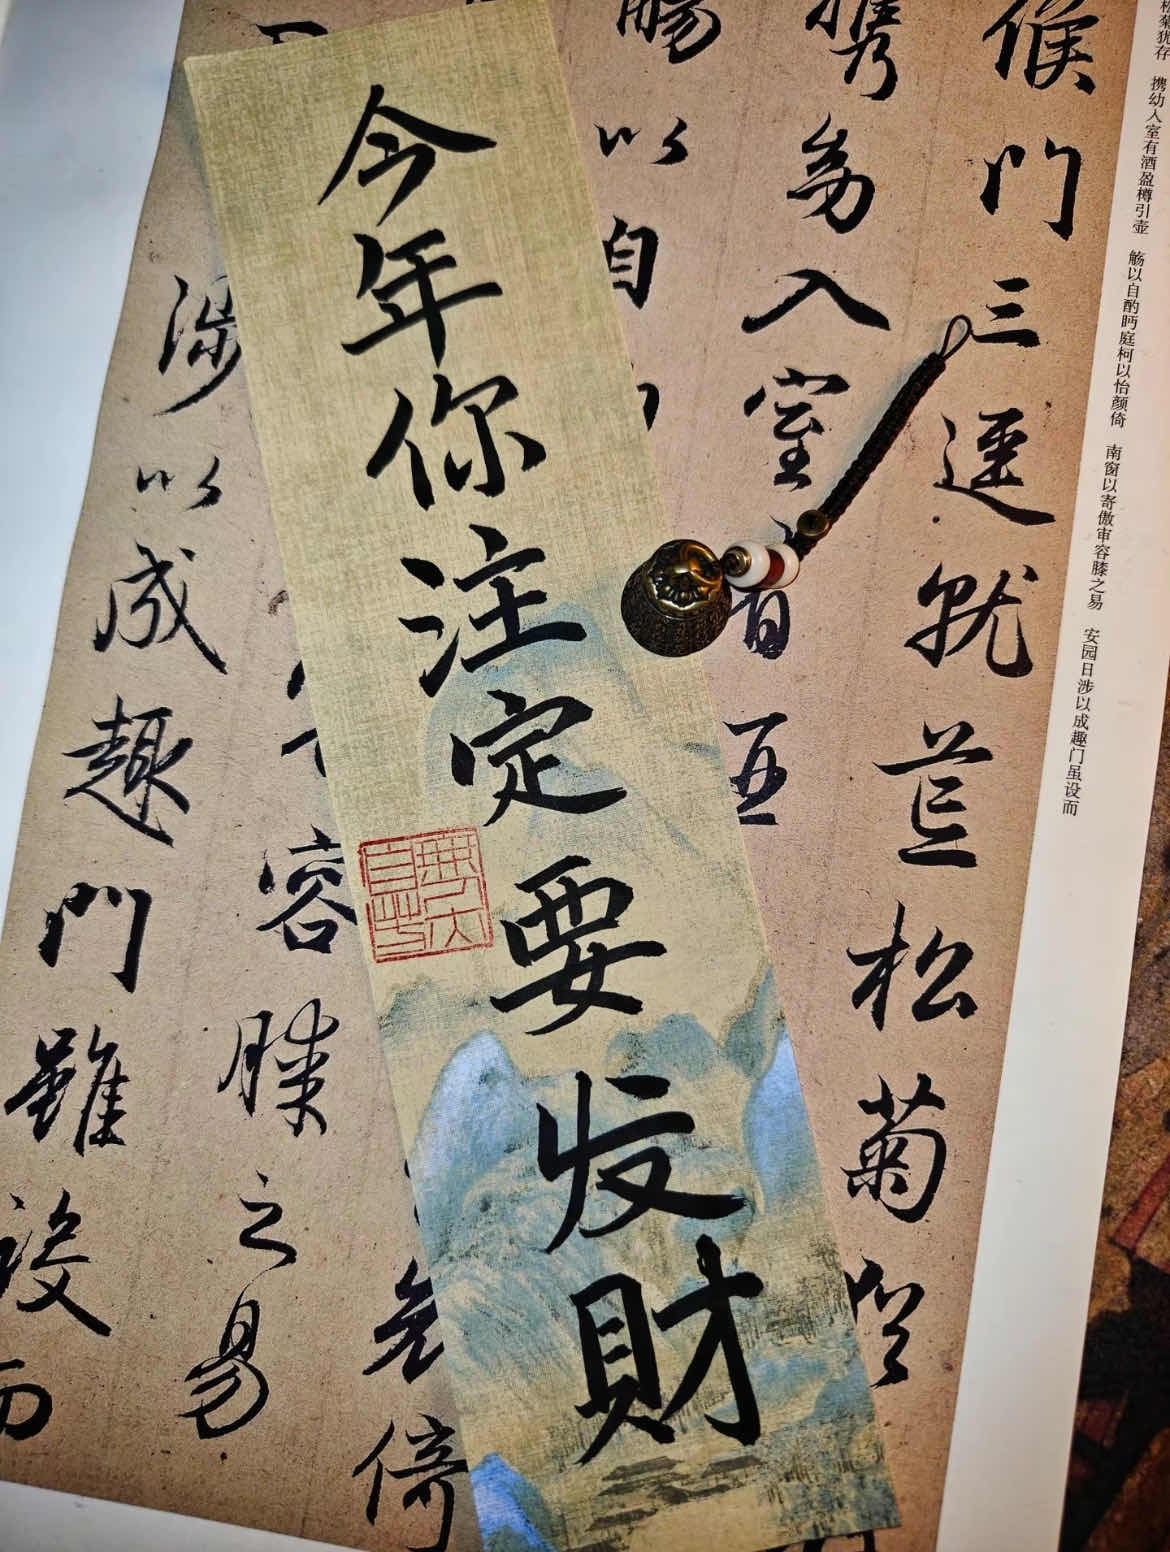 今年你注定要发财
候门三迳就荒松菊犹
携幼入室有酒盈
觞以自
容膝之易
倚
涉以成趣门虽设而
松菊犹存 携幼入室有酒盈樽引壶 觞以自酌眄庭柯以怡颜倚 南窗以寄傲审容膝之易 安园日涉以成趣门虽设而